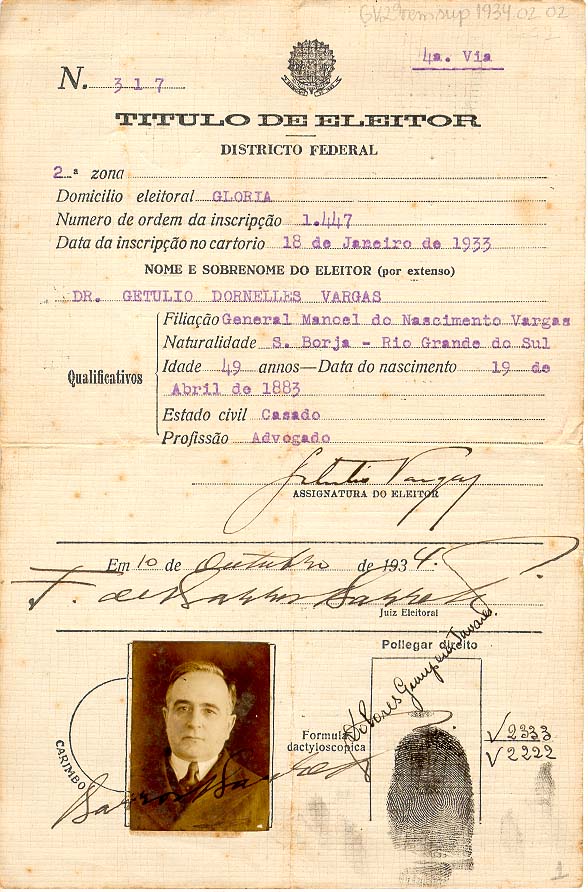 GV 29 vem sup 1934.02.02
4a. Via
N. 317
TITULO DE ELEITOR
DISTRICTO FEDERAL
2.ª zona
Domicilio eleitoral GLORIA
Numero de ordem da inscripção 1.447
Data da inscripção no cartorio 18 de Janeiro de 1933
NOME E SOBRENOME DO ELEITOR (por extenso)
DR. GETULIO DORNELLES VARGAS
Qualificativos
Filiação General Manoel do Nascimento Vargas
Naturalidade S. Borja - Rio Grande do Sul
Idade 49 annos—Data do nascimento 19 de
Abril de 1883
Estado civil Casado
Profissão Advogado
Getulio Vargas
ASSIGNATURA DO ELEITOR
Em 10 de Outubro de 1934.
F. de Barros Barreto
Juiz Eleitoral
Pollegar direito
CARIMBO
Barros Barreto
Formula dactyloscopica
Dolores
V 2333
V 2222
1